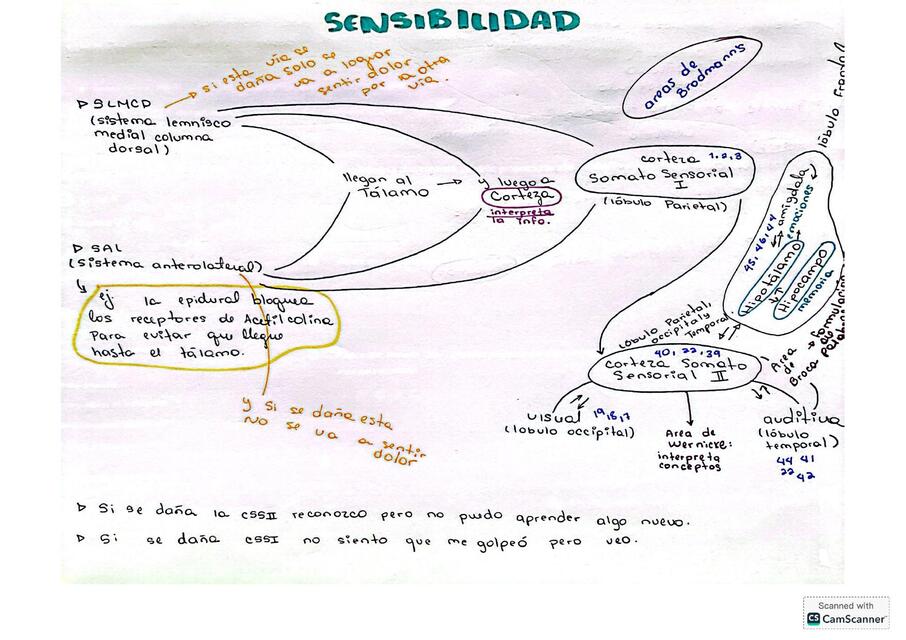 SENSIBILIDAD
→ si esta vía se
daña solo se
va a lograr
sentir dolor
por la otra
vía.
areas de
Brodmann's
lóbulo frontal
▷ SLMCD
(sistema lemnisco
medial columna
dorsal)
llegan al
Tálamo
→ y luego a
Corteza
interpreta
la info.
corteza 1,2,3
Somato Sensorial
I
(lóbulo Parietal)
amígdala
emociones
45, 46, 47
Hipotálamo
Hipocampo
memoria
▷ SAL
(sistema anterolateral)
ej la epidural bloquea
los receptores de Acetilcolina
Para evitar que llegue
hasta el tálamo.
y si se daña esta
NO se va a sentir
dolor
lóbulo Parietal,
occipital y
Temporal.
40, 22, 39
corteza Somato
Sensorial II
Area
de
Broca
→ formulación
de
palabras
visual 19,18,17
(lobulo occipital)
Area de
Wernicke:
interpreta
conceptos
auditiva
(lóbulo
temporal)
44 41
22 42
▷ Si se daña la CSSII reconozco pero no puedo aprender algo nuevo.
▷ Si se daña CSSI no siento que me golpeó pero veo.
Scanned with
CS CamScanner